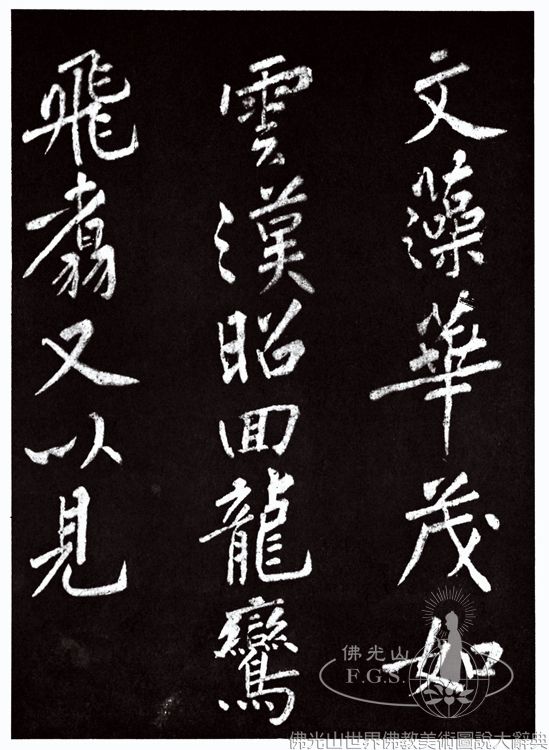 文藻華茂如
雲漢昭回龍鸞
飛翥又以見
佛光山
F.G.S.
佛光山世界佛教美術圖說大辭典